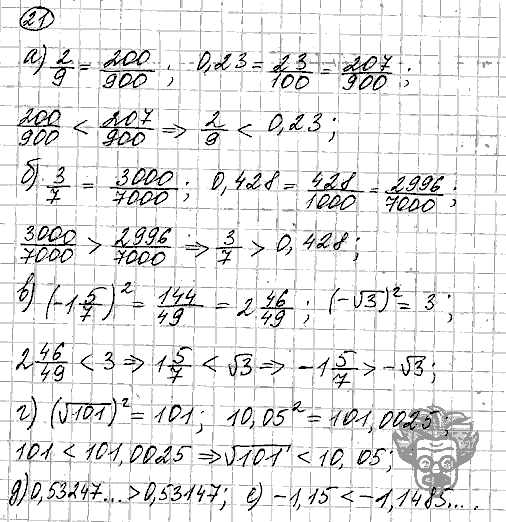 21
а) 2/9 = 200/900; 0,23 = 23/100 = 207/900;
200/900 < 207/900 ⇒ 2/9 < 0,23;
б) 3/7 = 3000/7000; 0,428 = 428/1000 = 2996/7000;
3000/7000 > 2996/7000 ⇒ 3/7 > 0,428;
в) (-1 5/7)² = 144/49 = 2 46/49; (-√3)² = 3;
2 46/49 < 3 ⇒ 1 5/7 < √3 ⇒ -1 5/7 > -√3;
г) (√101)² = 101; 10,05² = 101,0025;
101 < 101,0025 ⇒ √101 < 10,05;
д) 0,53247... > 0,53147; е) -1,15 < -1,1485...